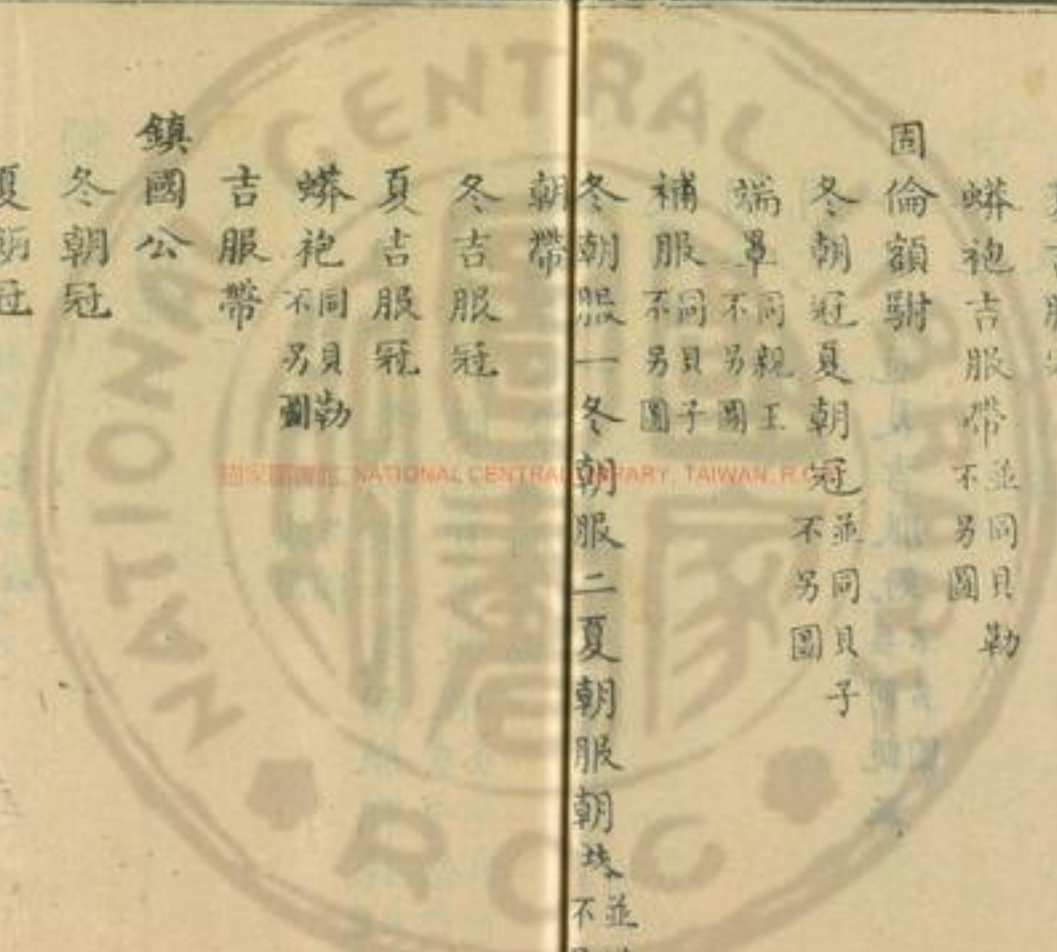 蟒袍吉服帶並同貝勒不另圖
固倫額駙
冬朝冠夏朝冠並同貝子不另圖
端罩同親王不另圖
補服同貝子不另圖
冬朝服一冬朝服二夏朝服朝珠並不
朝帶
冬吉服冠
夏吉服冠
蟒袍同貝勒不另圖
吉服帶
鎮國公
冬朝冠
夏朝冠
NATIONAL CENTRAL LIBRARY
國家圖書館 NATIONAL CENTRAL LIBRARY, TAIWAN, R.O.C